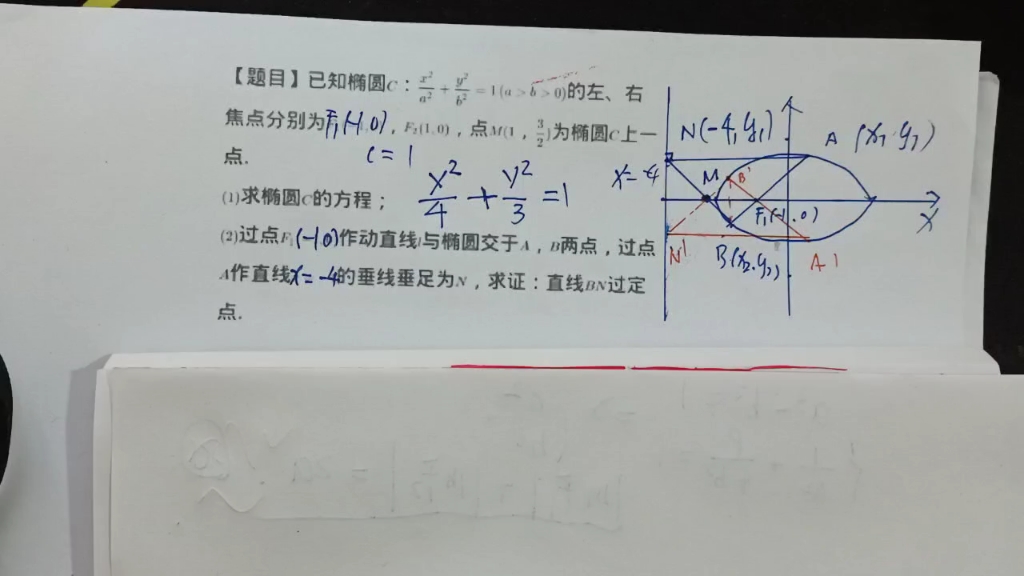 【题目】已知椭圆C：x²/a² + y²/b² = 1(a > b > 0)的左、右
焦点分别为F₁(-1,0)，F₂(1,0)，点M(1，3/2)为椭圆C上一
点.
c = 1
(1)求椭圆C的方程；
x²/4 + y²/3 = 1
(2)过点F₁(-1,0)作动直线l与椭圆交于A，B两点，过点
A作直线x=-4的垂线垂足为N，求证：直线BN过定
点.
N(-4,y₁)
A (x₁,y₁)
x=-4
M
B'
F₁(-1,0)
X
N'
B(x₂,y₂)
A'